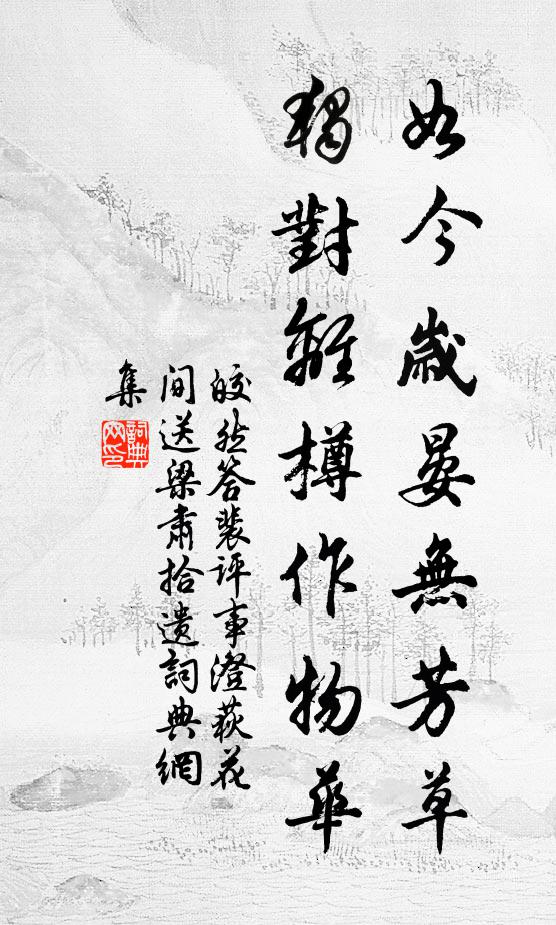 如今歲晏無芳草
獨對離樽作物華
皎然答裴評事澄荻花
間送梁肅拾遺詞典網
集
詞典网印